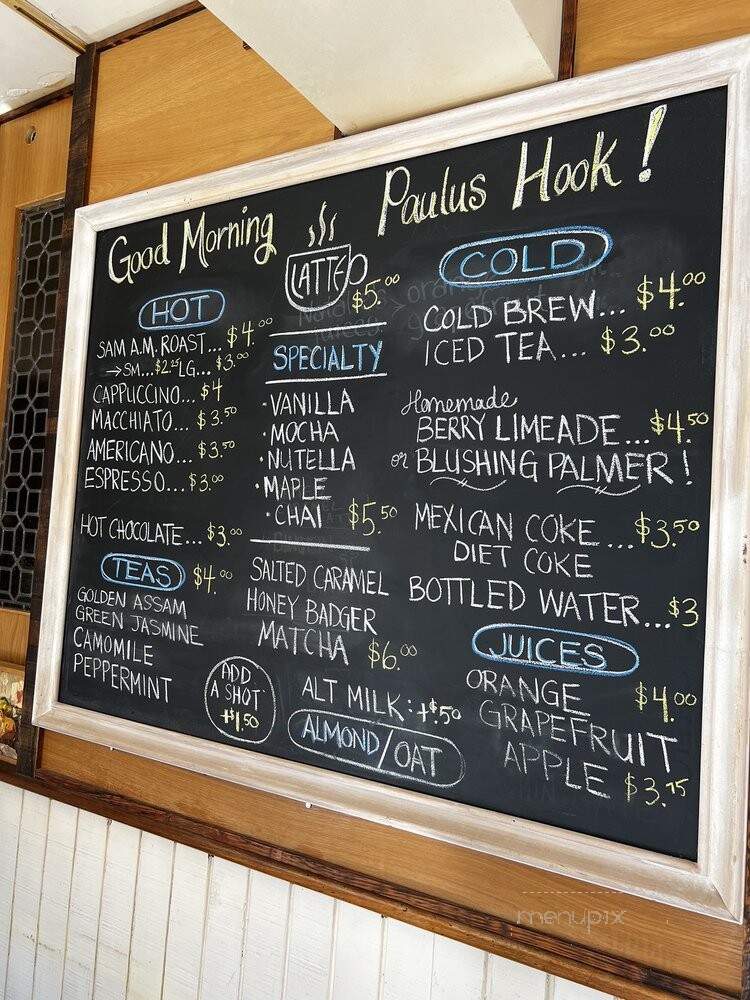 Good Morning Paulus Hook!
HOT
SAM A.M. ROAST... $4.00
→SM...$2.25 LG... $3.00
CAPPUCCINO... $4
MACCHIATO... $3.50
AMERICANO... $3.50
ESPRESSO... $3.00
HOT CHOCOLATE... $3.00
TEAS $4.00
GOLDEN ASSAM
GREEN JASMINE
CAMOMILE
PEPPERMINT
LATTE $5.00
SPECIALTY
·VANILLA
·MOCHA
·NUTELLA
·MAPLE
·CHAI $5.50
SALTED CARAMEL
HONEY BADGER
MATCHA $6.00
ADD
A SHOT
+$1.50
ALT MILK: +$.50
ALMOND/OAT
COLD
COLD BREW... $4.00
ICED TEA... $3.00
Homemade
BERRY LIMEADE... $4.50
or BLUSHING PALMER!
MEXICAN COKE ... $3.50
DIET COKE
BOTTLED WATER... $3
JUICES
ORANGE $4.00
GRAPEFRUIT
APPLE $3.75
menupix